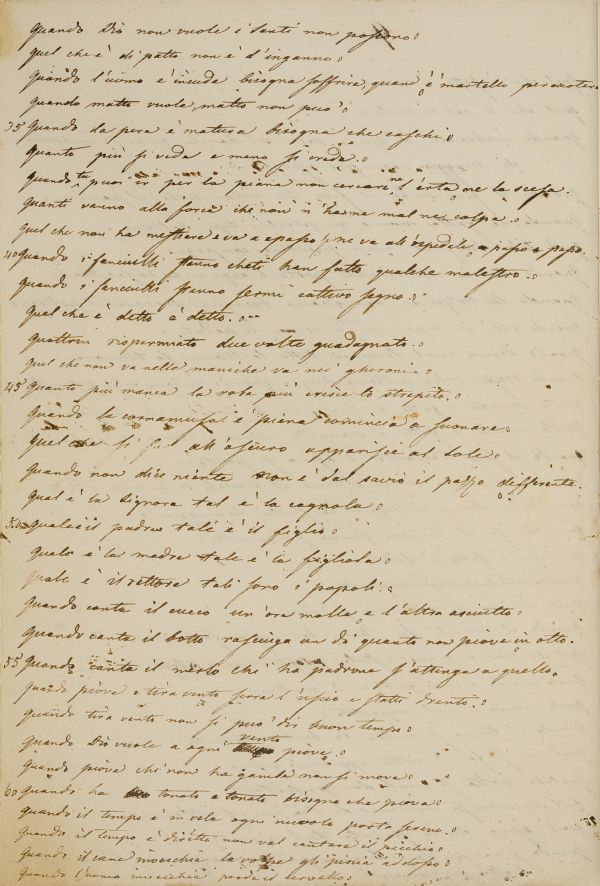 Quando Dio non vuole i santi non possono.
Quel che è di patto non è d'inganno.
Quando l'uomo è incude bisogna soffrire, quand'è martello percuotere
Quando matto vuole, matto non può.
35 Quando la pera è matura bisogna che caschi.
Quanto più si vede e meno si crede.
Quando tu puoi ir per la piana non cercare ne l'erta ne la scesa.
Quanti vanno alla forca che non n'hanno mal nè colpa.
Quel che non ha mestiere e va a spasso se ne va all'ospedale a passo a passo.
40 Quando i fanciulli stanno cheti han fatto qualche malestro.
Quando i fanciulli stanno fermi cattivo segno.
Quel che è detto è detto.
Quattrin risparmiato due volte guadagnato.
Quel che non va nelle maniche va nei gheroni.
45 Quanto più manca la roba più cresce lo strepito.
Quando la cornamusa è piena comincia a suonare.
Quel che si fa all'oscuro apparisce al Sole.
Quando non dice niente non è dal savio il pazzo differente.
Qual è la Signora tal è la cagnola.
50 Quale è il padre tale è il figlio.
Quale è la madre tale è la figliola.
Quale è il rettore tali sono i popoli.
Quando canta il cucco un'ora molle e l'altra asciutto.
Quando canta il botto rasciuga un dì quanto non piove in otto.
55 Quando canta il merlo chi ha padrone s'attenga a quello.
Quando piove e tira vento serra l'uscio e statti drento.
Quando tira vento non si può dir buon tempo.
Quando Dio vuole a ogni vento piove.
Quando piove chi non ha gamba non si mova.
60 Quando ha tonato e tonato bisogna che piova.
Quando il tempo è in vela ogni nuvolo porta sereno.
Quando il tempo è diritto non val cantare il picchio.
Quando il cane invecchia la volpe gli piscia addosso.
Quando l'uomo invecchia perde il cervello.